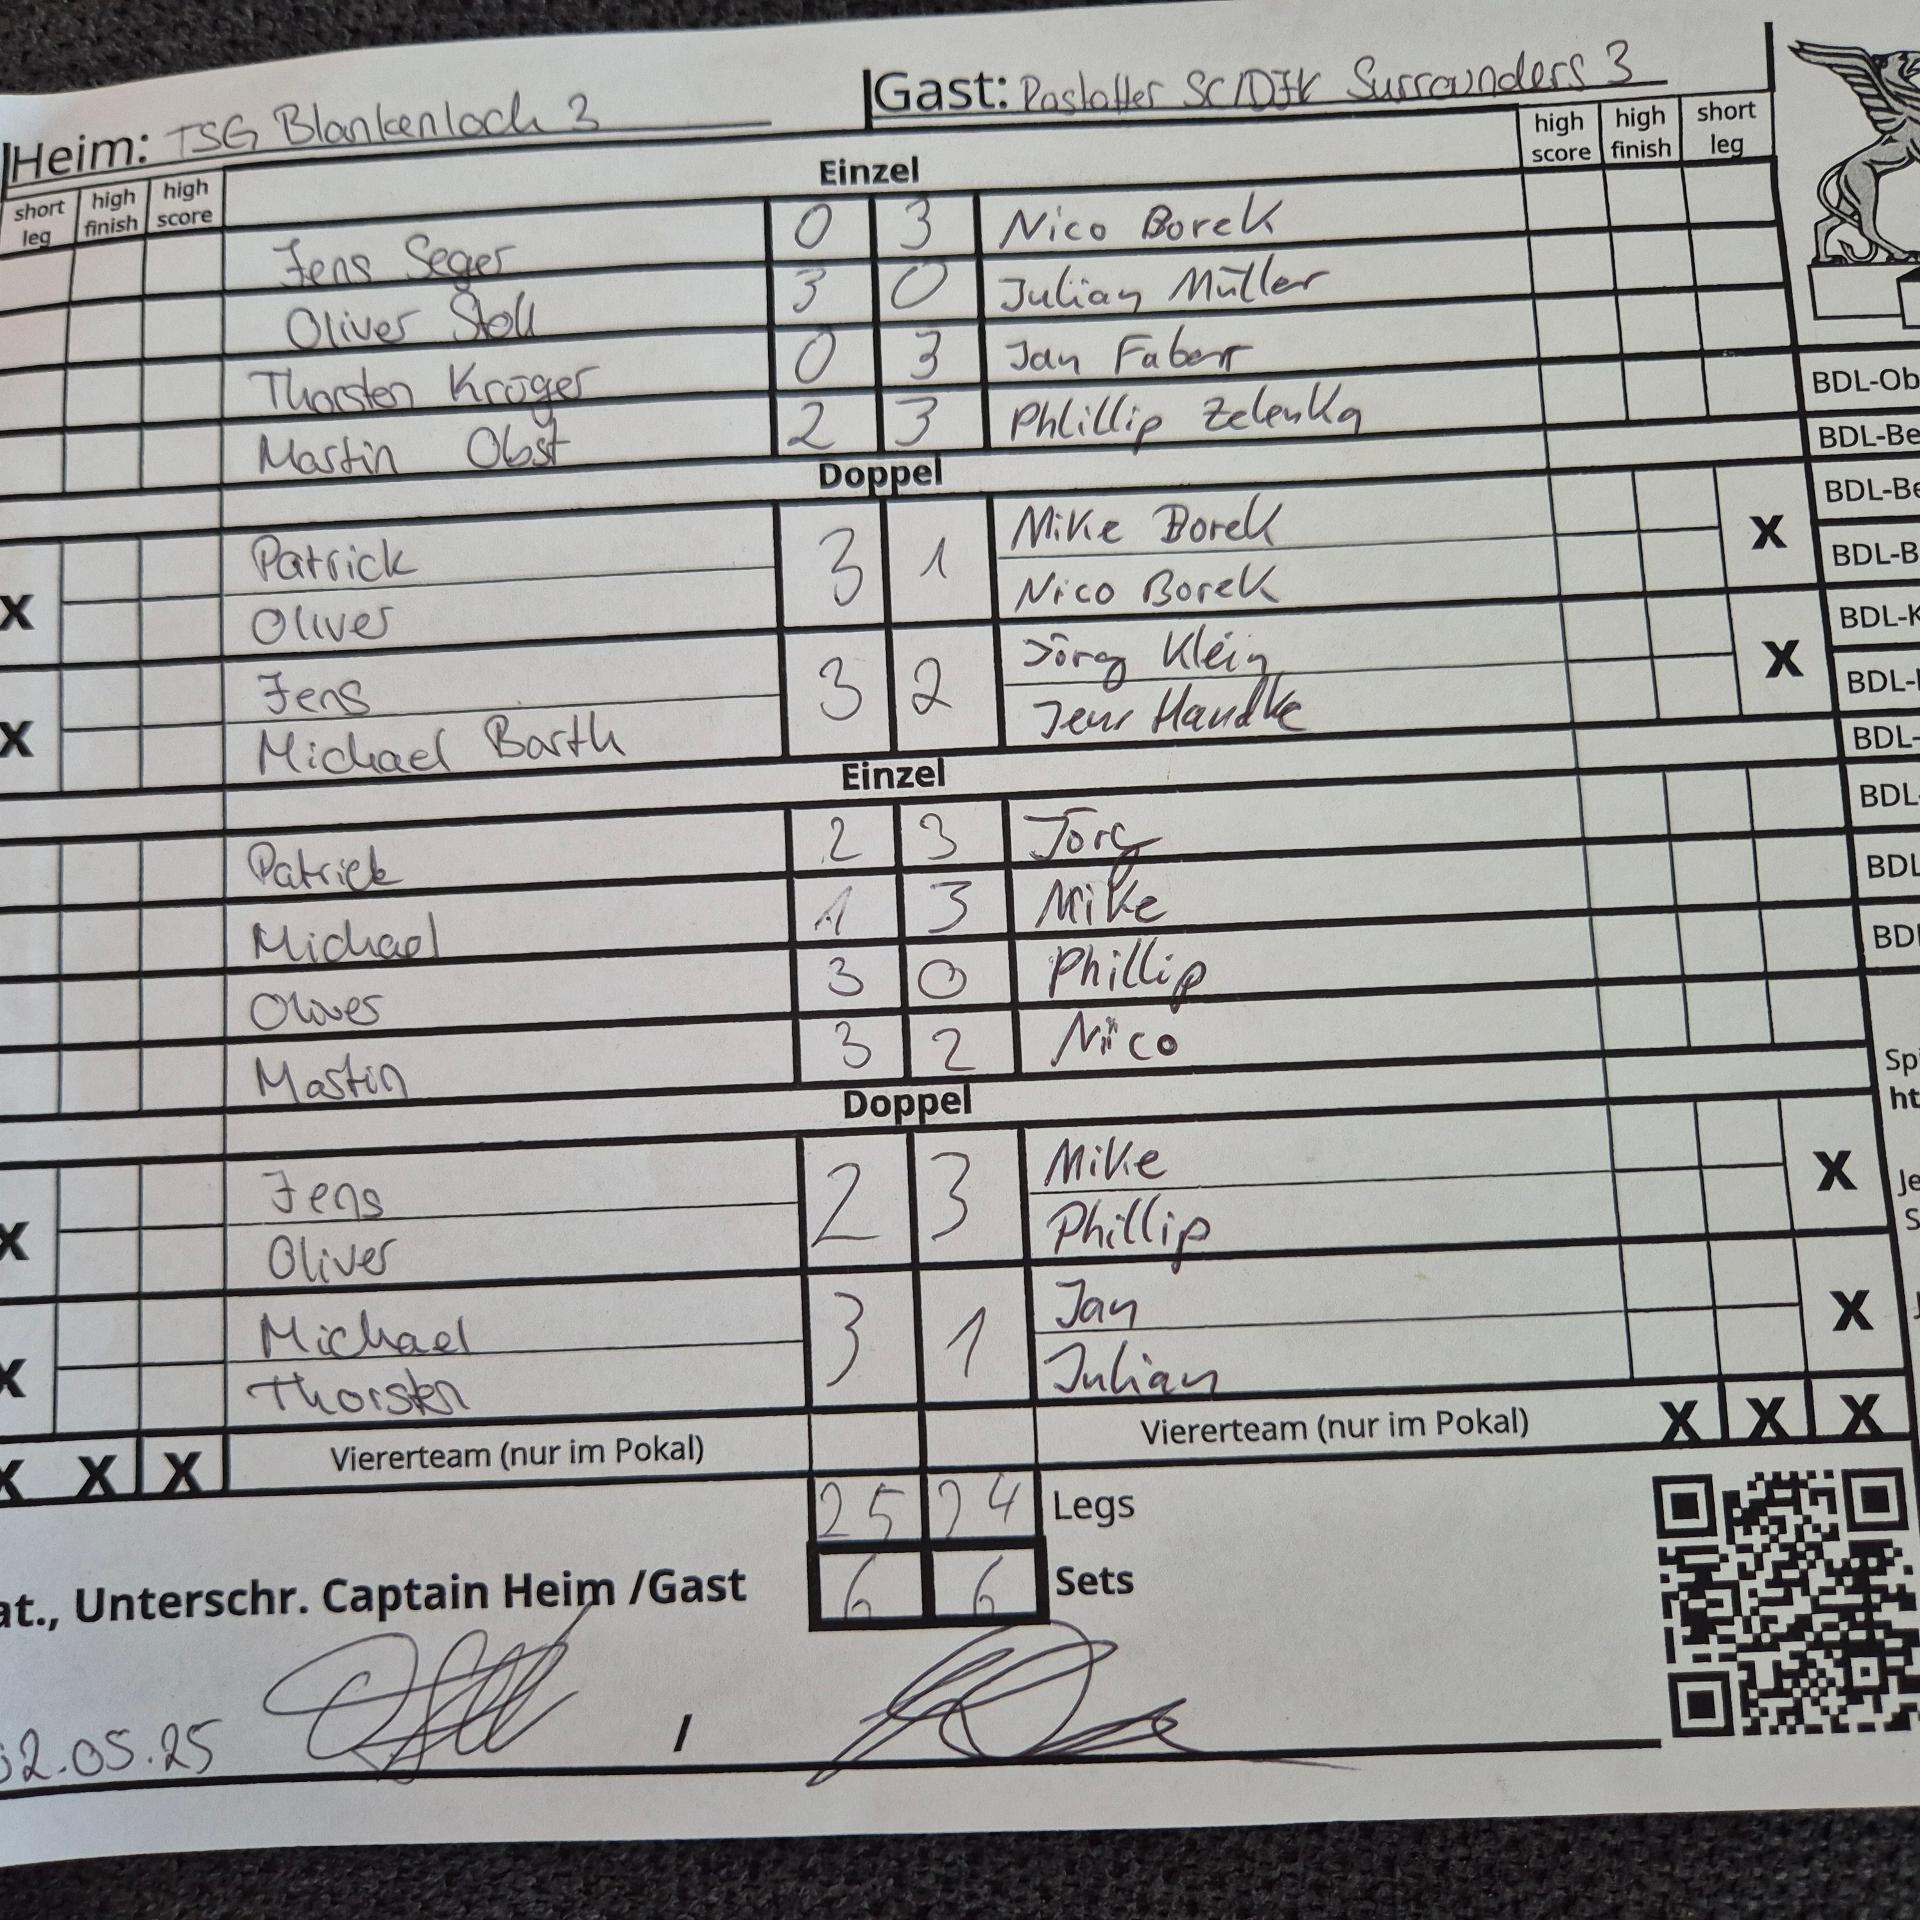 Heim: TSG Blankenloch 3 Gast: Rastatter SC/DJK Surrounders 3
short leg high finish high score Einzel high score high finish short leg
Jens Seger 0 3 Nico Borek
Oliver Stoll 3 0 Julian Müller
Thorsten Kröger 0 3 Jan Faber
Martin Obst 2 3 Phlillip Zelenka BDL-Ob
BDL-Be
Doppel
Patrick 3 1 Mike Borek BDL-Be
X Oliver Nico Borek X BDL-B
Jens 3 2 Jörg Klein BDL-K
X Michael Barth Jens Handke X BDL-
Einzel BDL-
Patrick 2 3 Jörg BDL-
Michael 1 3 Mike BDL
Oliver 3 0 Phillip BDL
Martin 3 2 Nico
Doppel
Spi
ht
Jens 2 3 Mike
X Oliver Phillip X Je
S
Michael 3 1 Jan
X Thorsten Julian X
X X X Viererteam (nur im Pokal) Viererteam (nur im Pokal) X X X
25 24 Legs
at., Unterschr. Captain Heim /Gast 6 6 Sets
02.05.25 /